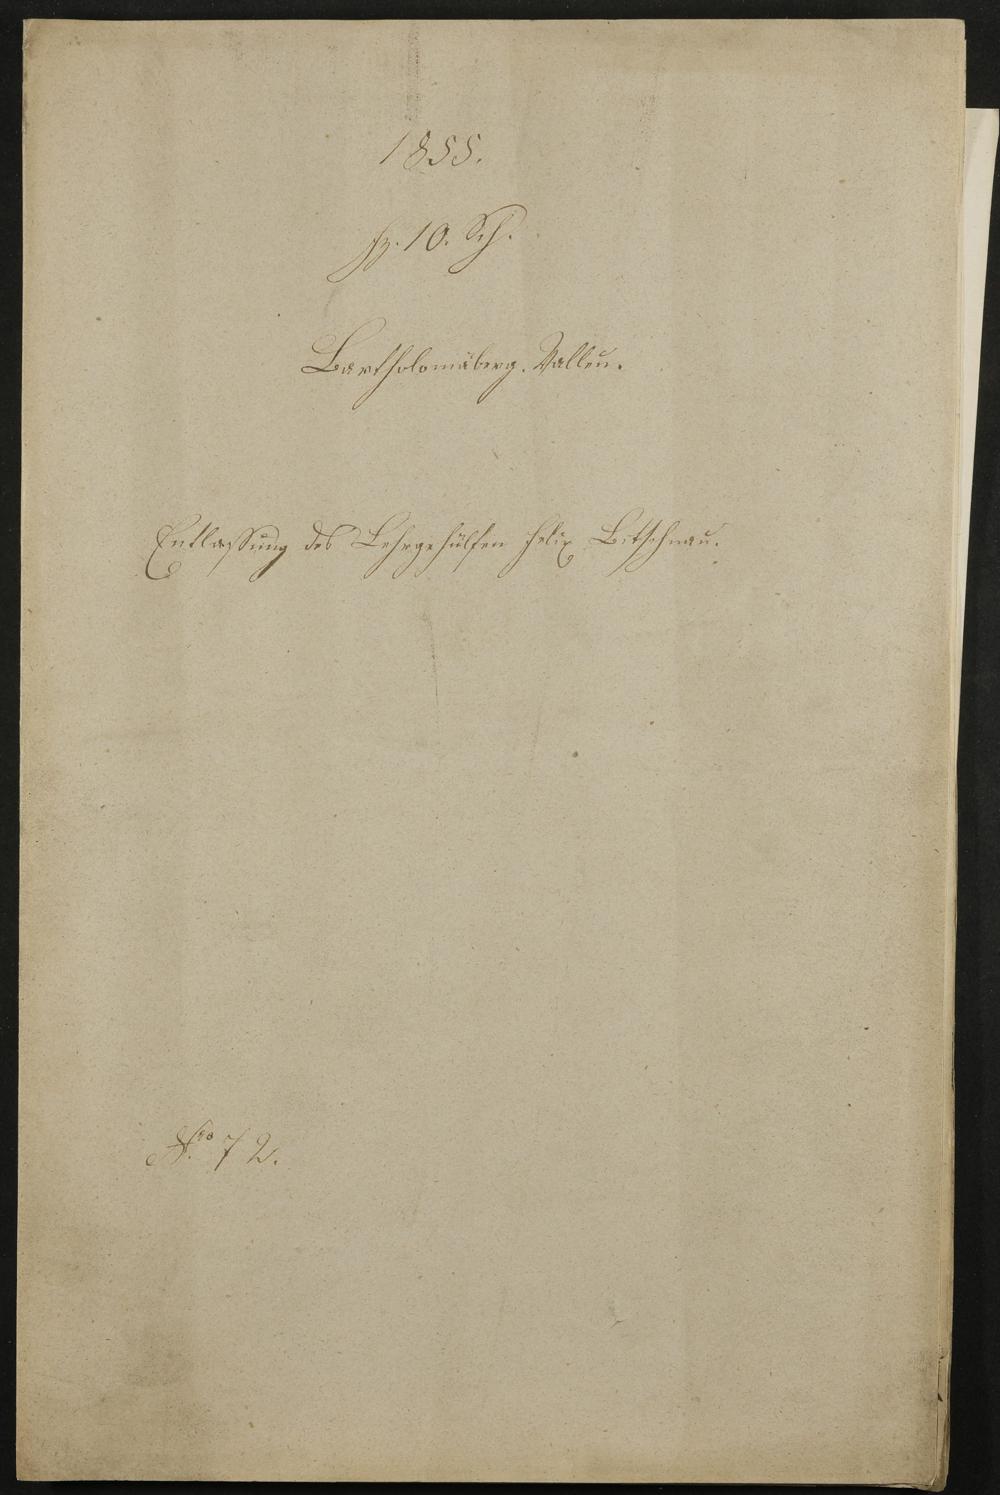 1855.
fz. 10. Sch.
Bartholomäberg. Valleu.
Entlassung des Lehrgehülfen Felix Bitschnau.
Nro 72.